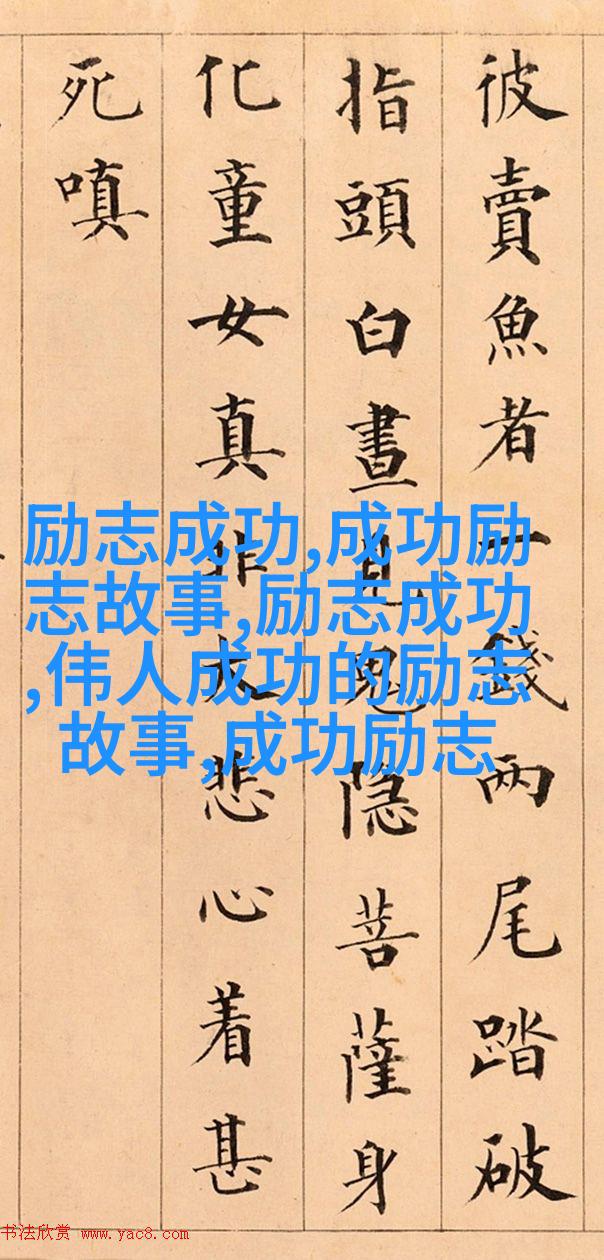 彼賣魚者一錢兩尾踏破
指頭白晝見鬼隐菩薩身
化童女真非大悲心着甚
死嗔
励志成功,成功励
志故事,励志成功
,伟人成功的励志
故事,成功励志
书法欣赏 www.yac8.com